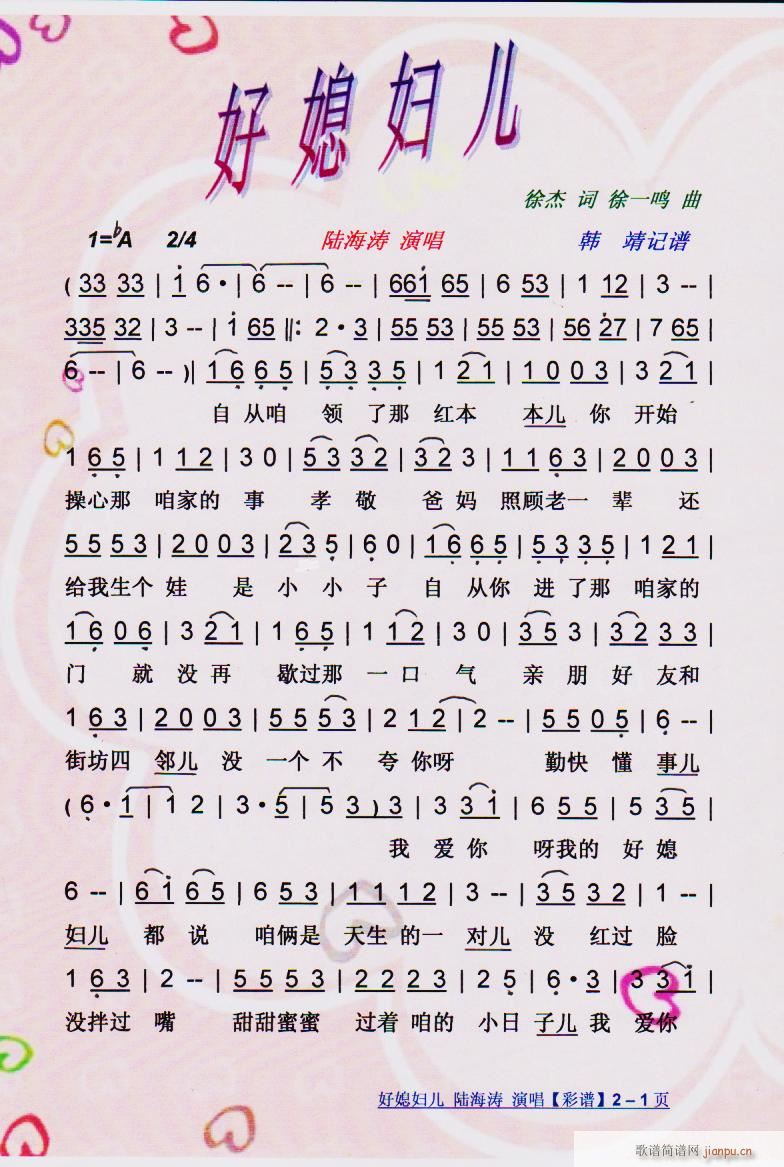 好媳妇儿
徐杰 词 徐一鸣 曲
1=♭A 2/4 陆海涛 演唱 韩 靖记谱
( 33 33 | 1 6 · | 6 -- | 6 -- | 661 65 | 6 53 | 1 12 | 3 -- |
335 32 | 3 -- | 1 65 ‖: 2 · 3 | 55 53 | 55 53 | 56 27 | 7 65 |
6 -- | 6 -- )| 1 6 6 5 | 5 3 3 5 | 1 2 1 | 1 0 0 3 | 3 2 1 |
自 从咱 领 了那 红本 本儿 你 开始
1 6 5 | 1 1 2 | 3 0 | 5 3 3 2 | 3 2 3 | 1 1 6 3 | 2 0 0 3 |
操心那 咱家的 事 孝 敬 爸 妈 照顾老一 辈 还
5 5 5 3 | 2 0 0 3 | 2 3 5 | 6 0 | 1 6 6 5 | 5 3 3 5 | 1 2 1 |
给我生个 娃 是 小 小 子 自 从你 进 了那 咱家的
1 6 0 6 | 3 2 1 | 1 6 5 | 1 1 2 | 3 0 | 3 5 3 | 3 2 3 3 |
门 就 没再 歇过那 一 口 气 亲 朋 好 友和
1 6 3 | 2 0 0 3 | 5 5 5 3 | 2 1 2 | 2 -- | 5 5 0 5 | 6 -- |
街坊四 邻儿 没 一个 不 夸 你呀 勤快 懂 事儿
( 6 · 1 | 1 2 | 3 · 5 | 5 3 ) 3 | 3 3 1 | 6 5 5 | 5 3 5 |
我 爱 你 呀我的 好 媳
6 -- | 6 1 6 5 | 6 5 3 | 1 1 1 2 | 3 -- | 3 5 3 2 | 1 -- |
妇儿 都 说 咱俩是 天生 的一 对儿 没 红过 脸
1 6 3 | 2 -- | 5 5 5 3 | 2 2 2 3 | 2 5 | 6 · 3 | 3 3 1 |
没拌过 嘴 甜甜蜜蜜 过着 咱的 小日 子儿 我 爱你
好媳妇儿 陆海涛 演唱【彩谱】2－1页
歌谱简谱网
jianpu.cn